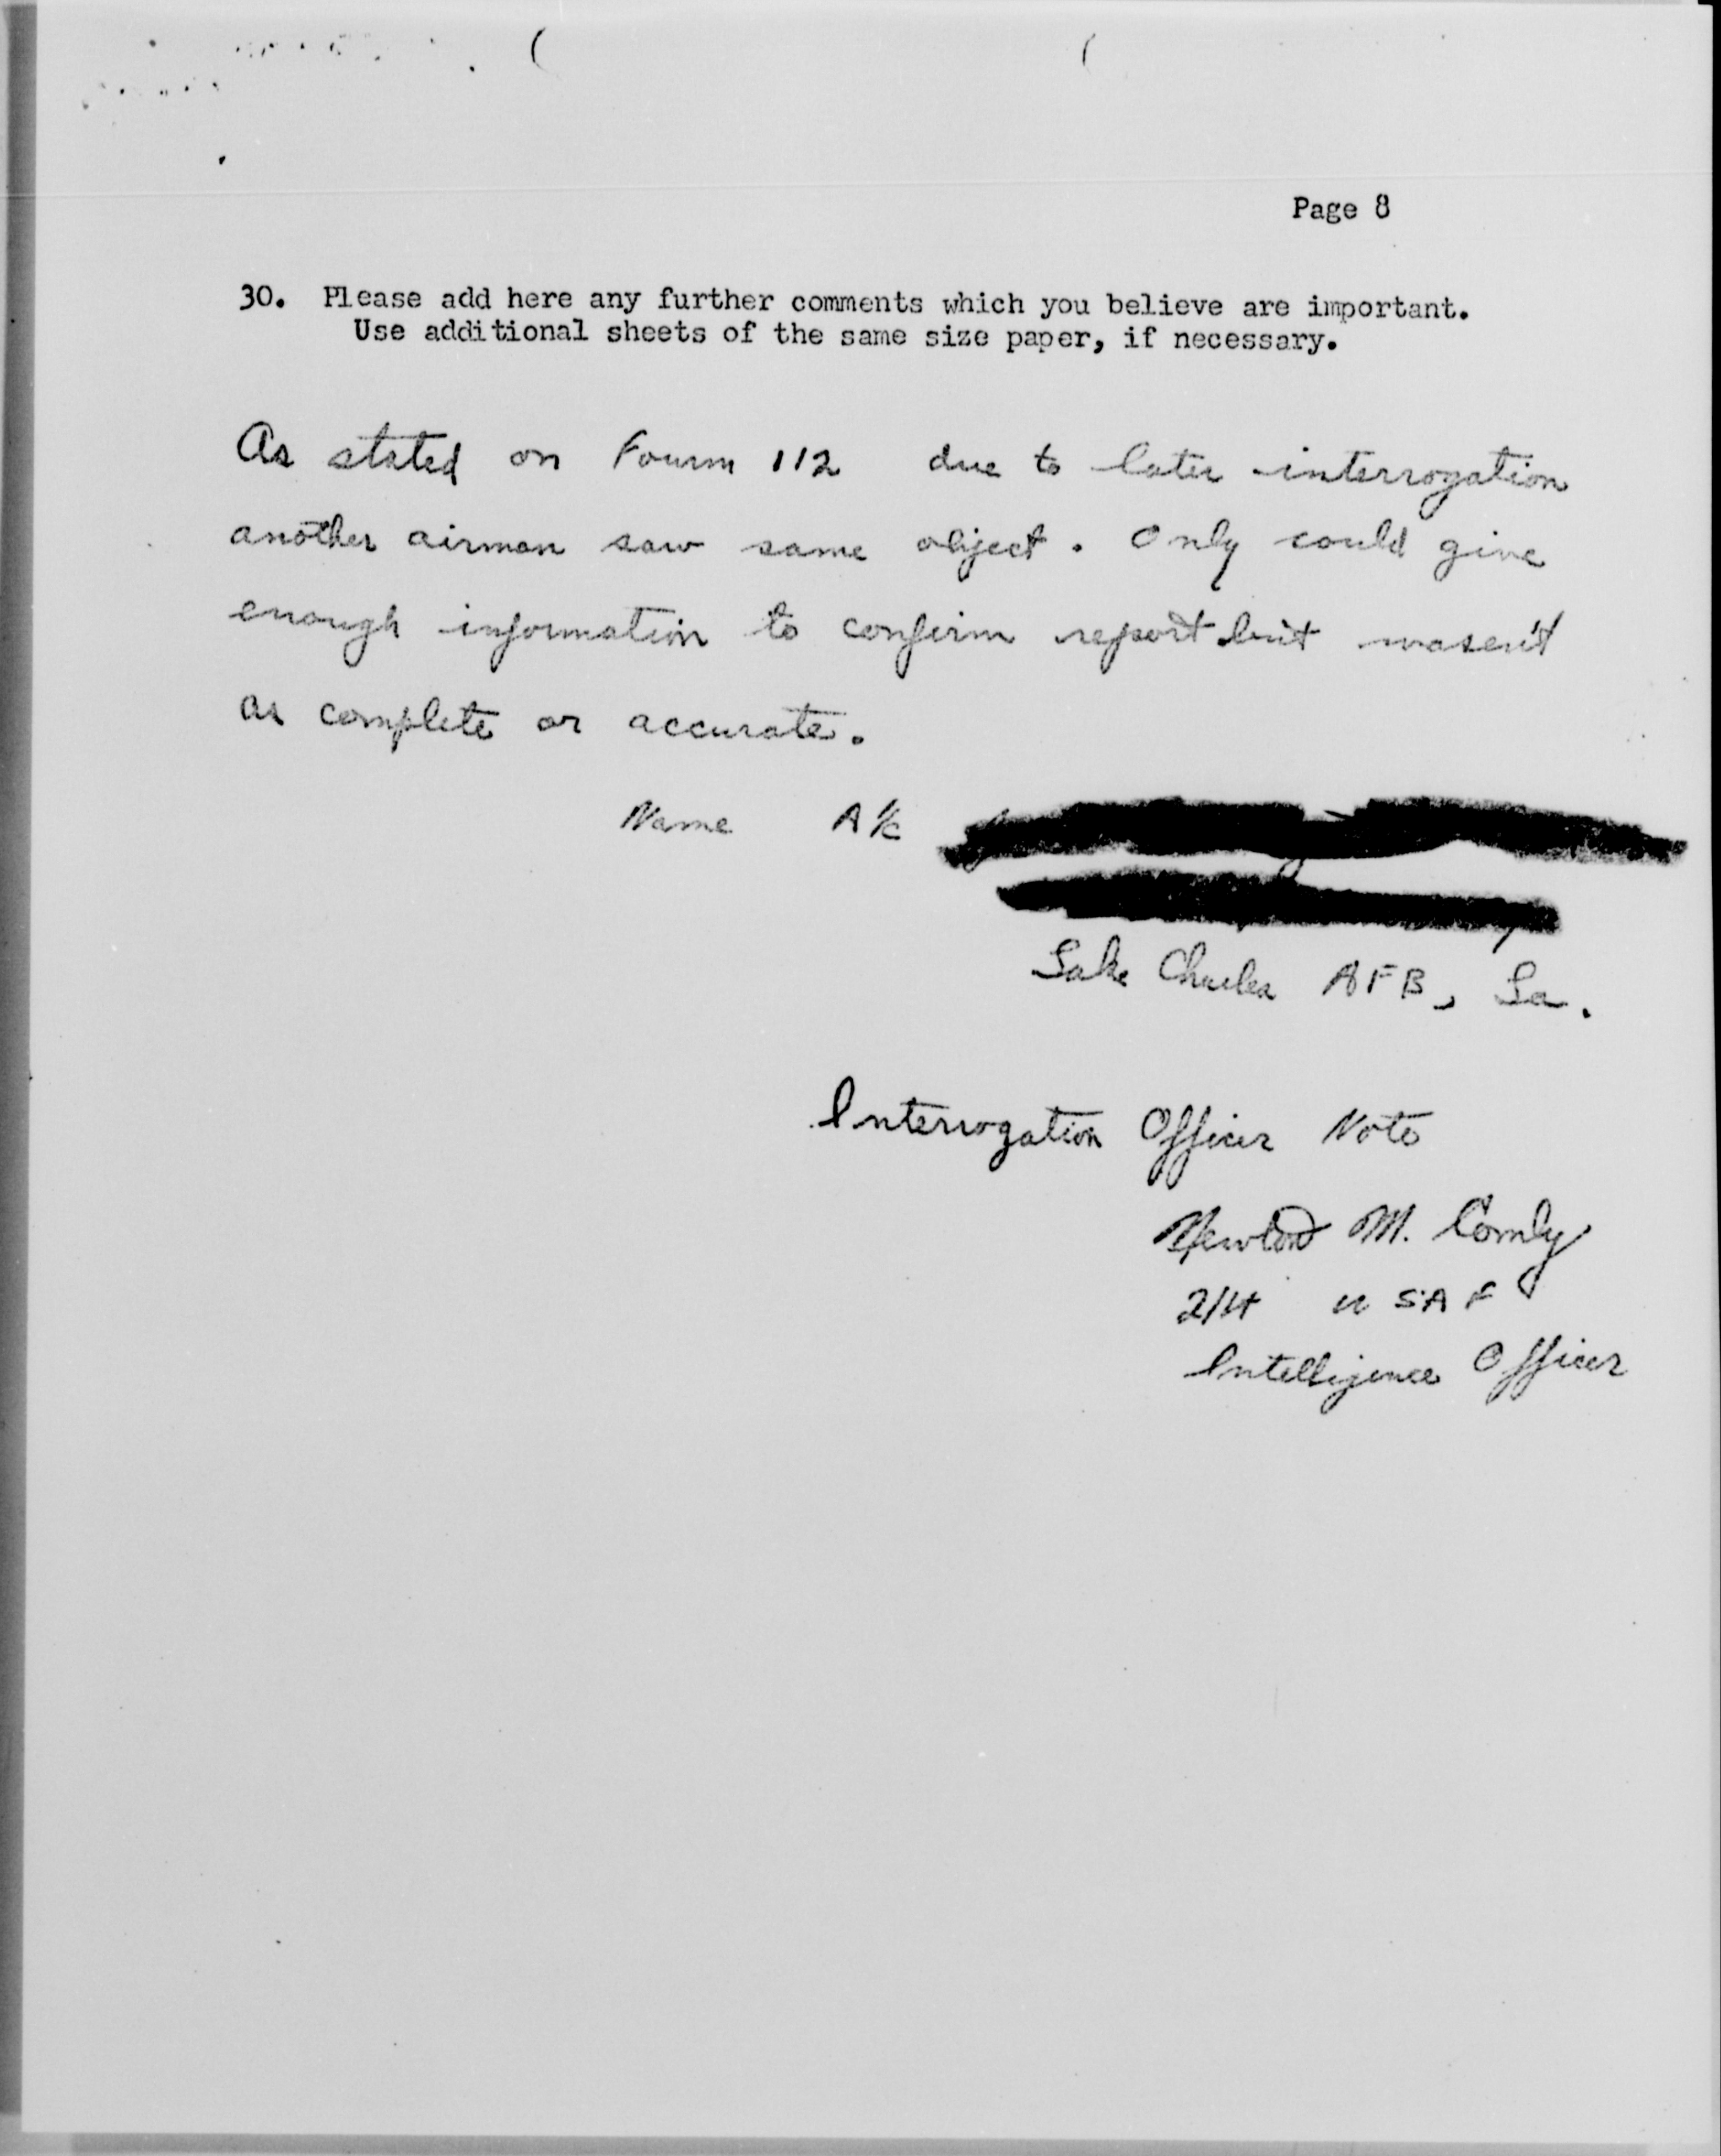 Page 8
30. Please add here any further comments which you believe are important.
Use additional sheets of the same size paper, if necessary.
As stated on Fourm 112 due to later interrogation
another airman saw same object. Only could give
enough information to confirm report but wasen't
as complete or accurate.
Name A/c
Lake Charles AFB, La.
Interrogation Officer Note
Newton M. Comly
2/Lt USAF
Intelligence Officer